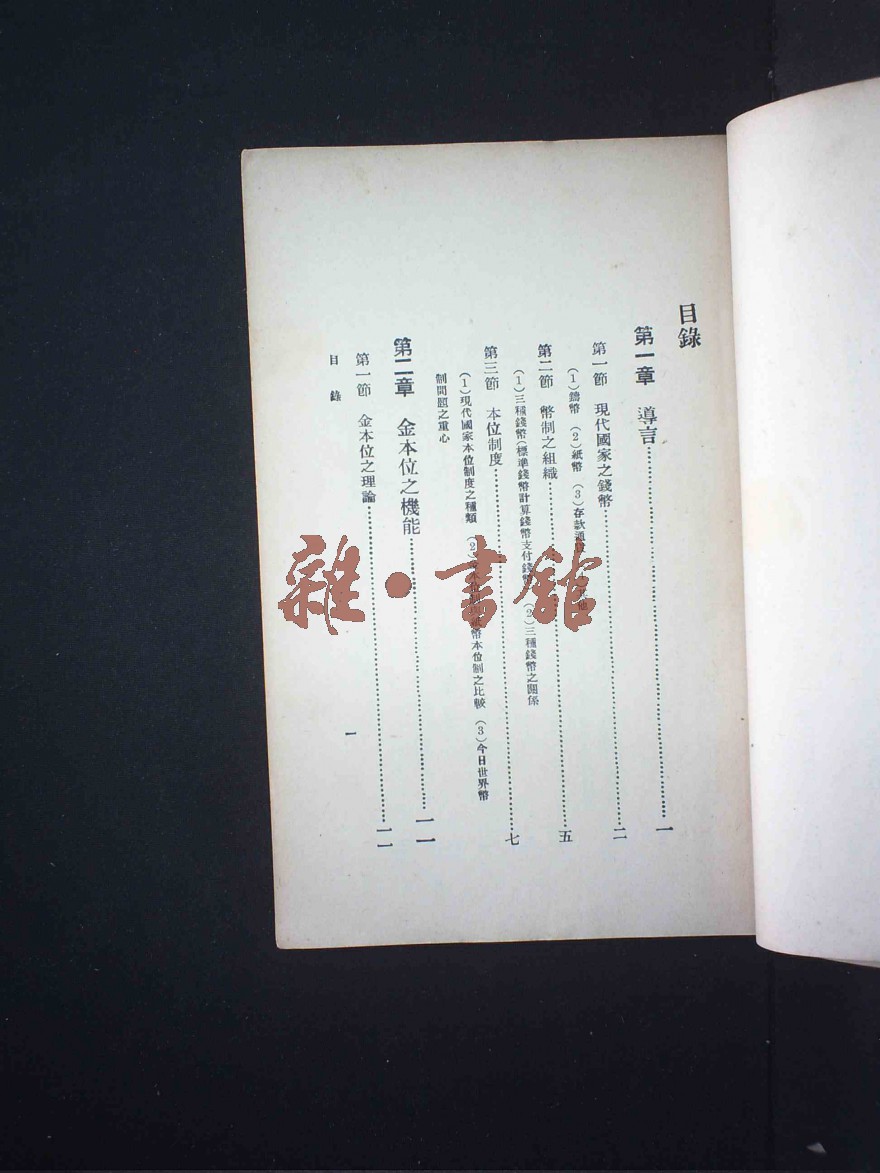 目錄
第一章 導言……一
第一節 現代國家之錢幣……二
(1)鑄幣 (2)紙幣 (3)存款通
第二節 幣制之組織……五
(1)三種錢幣(標準錢幣計算錢幣支付錢幣 (2)三種錢幣之關係
第三節 本位制度……七
(1)現代國家本位制度之種類 (2) 紙幣本位制之比較 (3)今日世界幣
制問題之重心
第二章 金本位之機能……一一
第一節 金本位之理論……一一
目錄
一
雜·書館